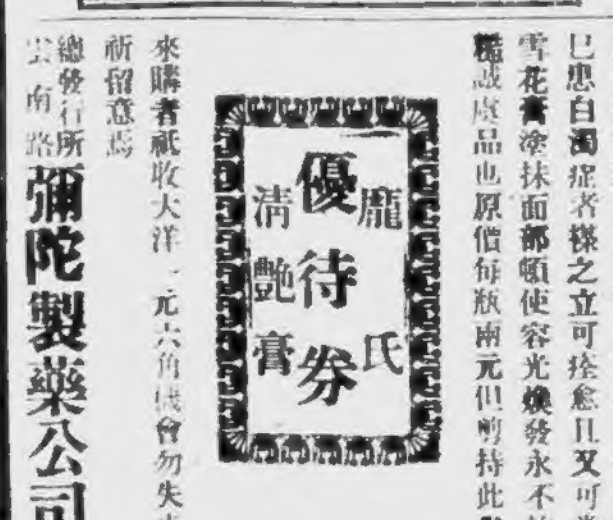 已患白濁症者搽之立可痊愈且又可
雪花膏塗抹面部頓使容光煥發永不
糙誠處品也原價每瓶兩元但剪持此
龐氏
優待券
清艷膏
來購者祇收大洋一元六角機會勿失
祈留意焉
總發行所
雲南路
彌陀製藥公司